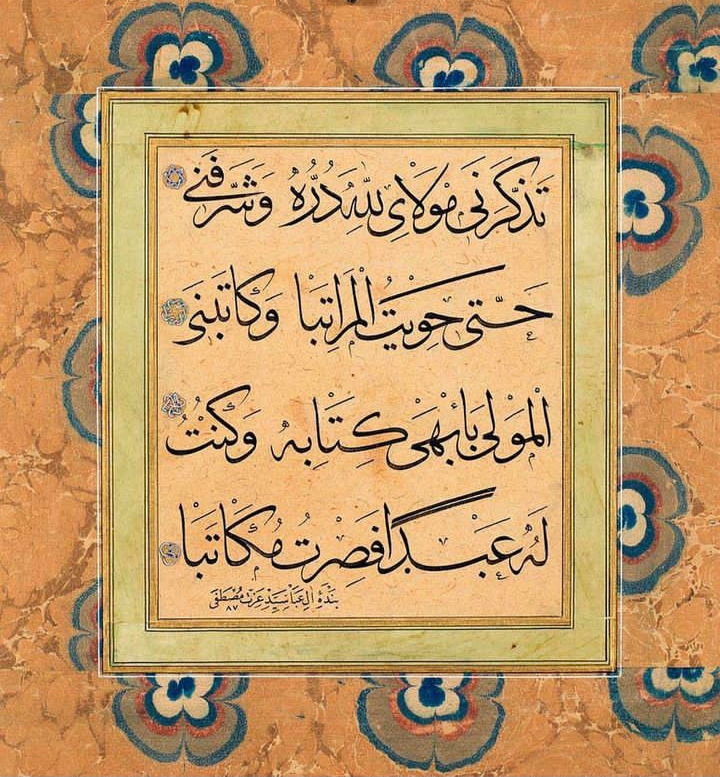 تَذَكَّرَنِي مَوْلَايَ لِلّٰهِ دُرُّهُ وَشَرَّفَنِي
حَتّٰى حَوَيْتُ الْمَرَاتِبَا وَكَاتَبَنِي
الْمَوْلٰى بِأَبْهٰى كِتَابِهِ وَكُنْتُ
لَهُ عَبْدًا فَصِرْتُ مُكَاتَبًا
بندهٔ آل عبا سيد عزت مصطفى
٨٧